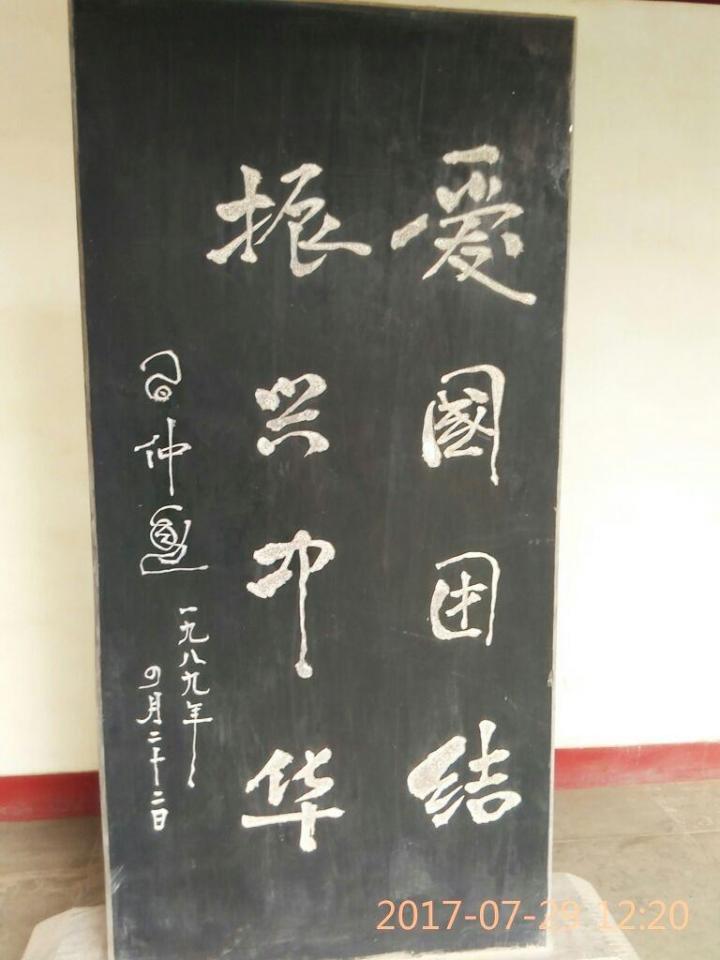 爱國团结
振兴中华
习仲勋
一九八九年
四月二十二日
2017-07-29 12:20